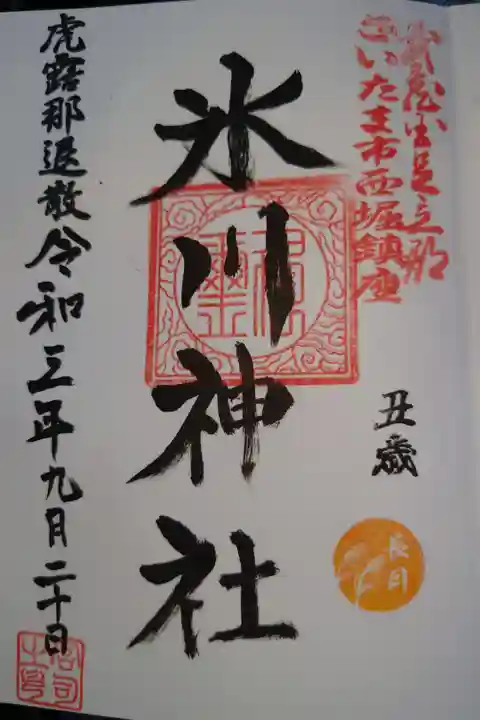 武蔵国足立郡
さいたま市西堀鎮座
丑歳
長月
氷川神社
虎露那退散令和三年九月二十日